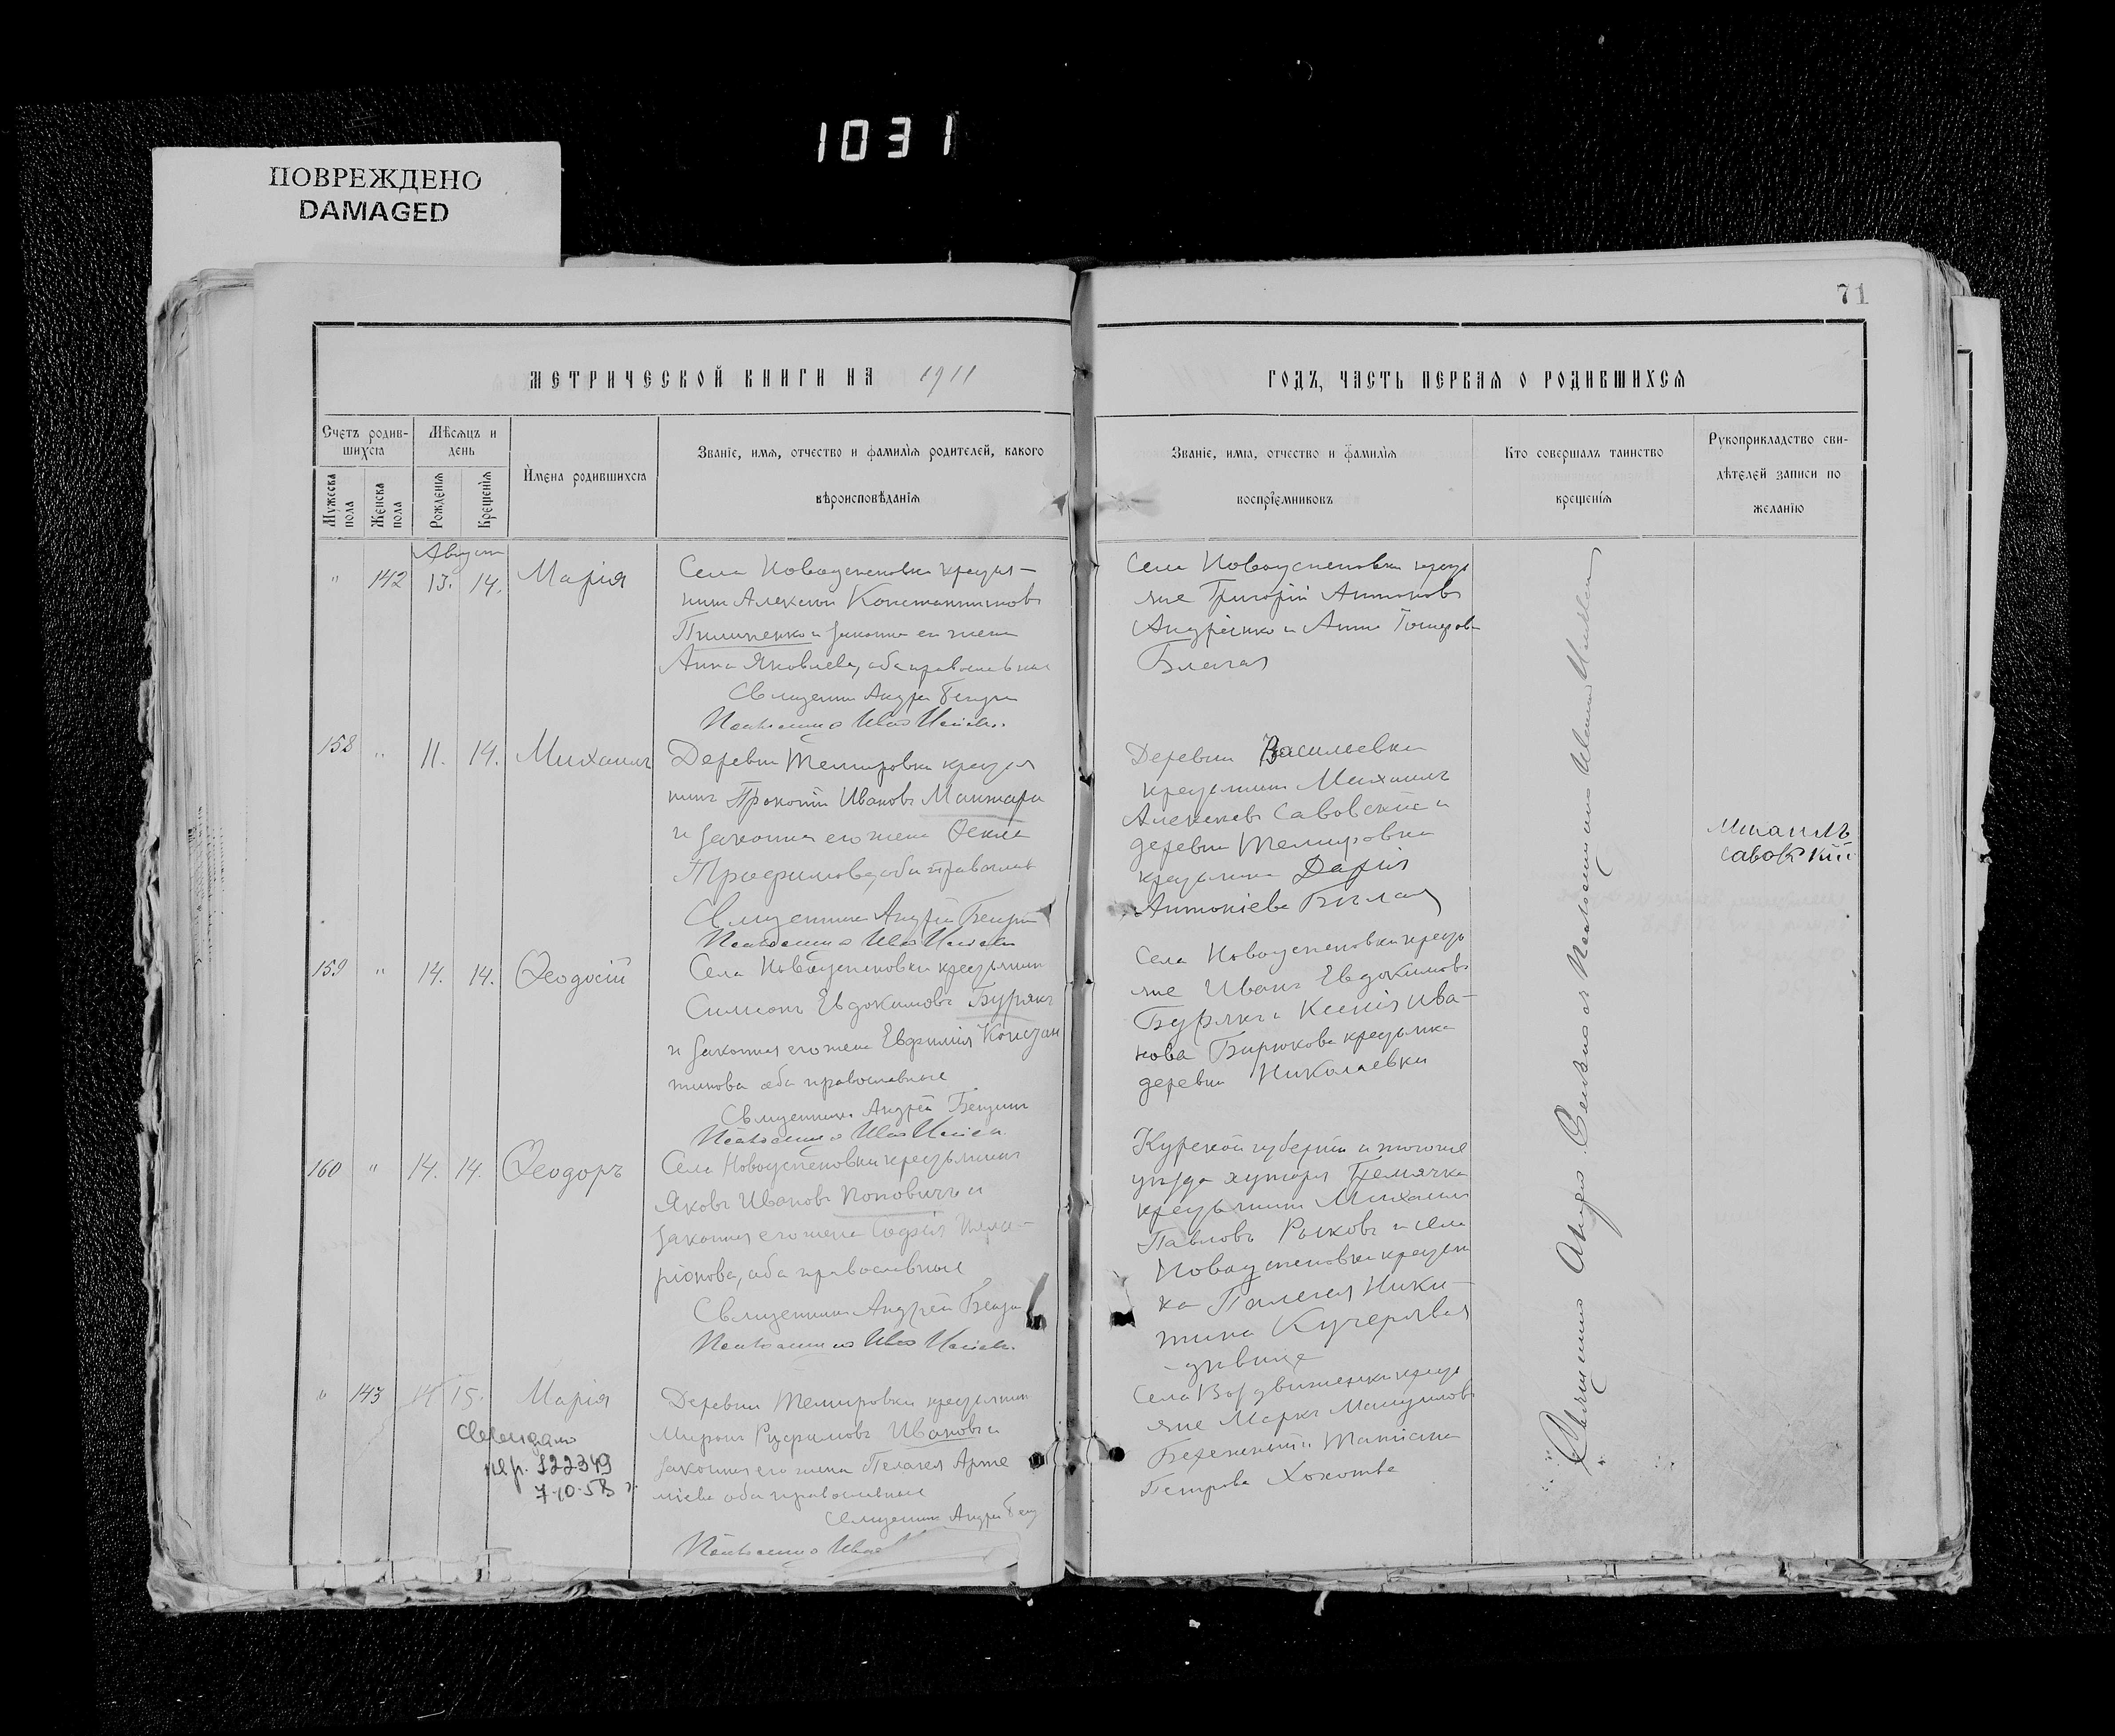 1031
ПОВРЕЖДЕНО
DAMAGED
71
МЕТРИЧЕСКОЙ КНИГИ НА 1911
ГОДЪ, ЧАСТЬ ПЕРВАЯ О РОДИВШИХСЯ
Счетъ родив-
шихся
Мужеска пола
Женска пола
Мѣсяцъ и
день
Рожденія
Крещенія
Имена родившихся
Званіе, имя, отчество и фамилія родителей, какого
вѣроисповѣданія
Званіе, имя, отчество и фамилія
воспріемниковъ
Кто совершалъ таинство
крещенія
Рукоприкладство сви-
дѣтелей записи по
желанію
Августъ
" 142 13. 14. Марія
Села Новоуспеновки крестья-
нинъ Алексій Константиновъ
Пилипенко и законная его жена
Анна Яковлева, оба православные
Священникъ Андрей
Псаломщикъ
Села Новоуспеновки кресть
яне Григорій Антоновъ
Андрейко и Анна
158 " 11. 14. Михаилъ
Деревни Темировки крестья
нинъ Прокопій Ивановъ
и законная его жена Ѳекла
Трофимова, оба православ
Священникъ Андрей
Псаломщикъ
Деревни Васильевки
крестьянинъ Михаилъ
Алексеевъ Савовскій и
деревни Темировки
крестьянка Дарія
Антоніева
Михаилъ
159 " 14. 14. Ѳеодосій
Села Новоуспеновки крестьянинъ
Симеонъ Евдокимовъ Бурякъ
и законная его жена Евфимія Констан
тинова оба православные
Священникъ Андрей
Псаломщикъ
Села Новоуспеновки кресть
яне Иванъ Евдокимовъ
Бурякъ и Ксенія Ива-
нова Бирюкова крестьянка
деревни Николаевки
160 " 14. 14. Ѳеодоръ
Села Новоуспеновки крестьянинъ
Яковъ Ивановъ Поповичъ и
законная его жена Софія Илла-
ріонова, оба православные
Священникъ Андрей
Псаломщикъ
Курской губерніи и того же
уѣзда хутора
крестьянинъ Михаилъ
Павловъ Рыковъ и села
Новоуспеновки крестьян
ка Пелагея Ники-
тина Кучерявая
-дѣвица
" 143 14 15. Марія
Деревни Темировки крестьянинъ
Миронъ Руфимовъ Ивановъ и
законная его жена Пелагея Арте
міева оба православные
Священникъ Андрей
Псаломщикъ
Села Воздвиженки кресть
яне Марко
и Татіана
Петрова
7-10-58
Священникъ Андрей